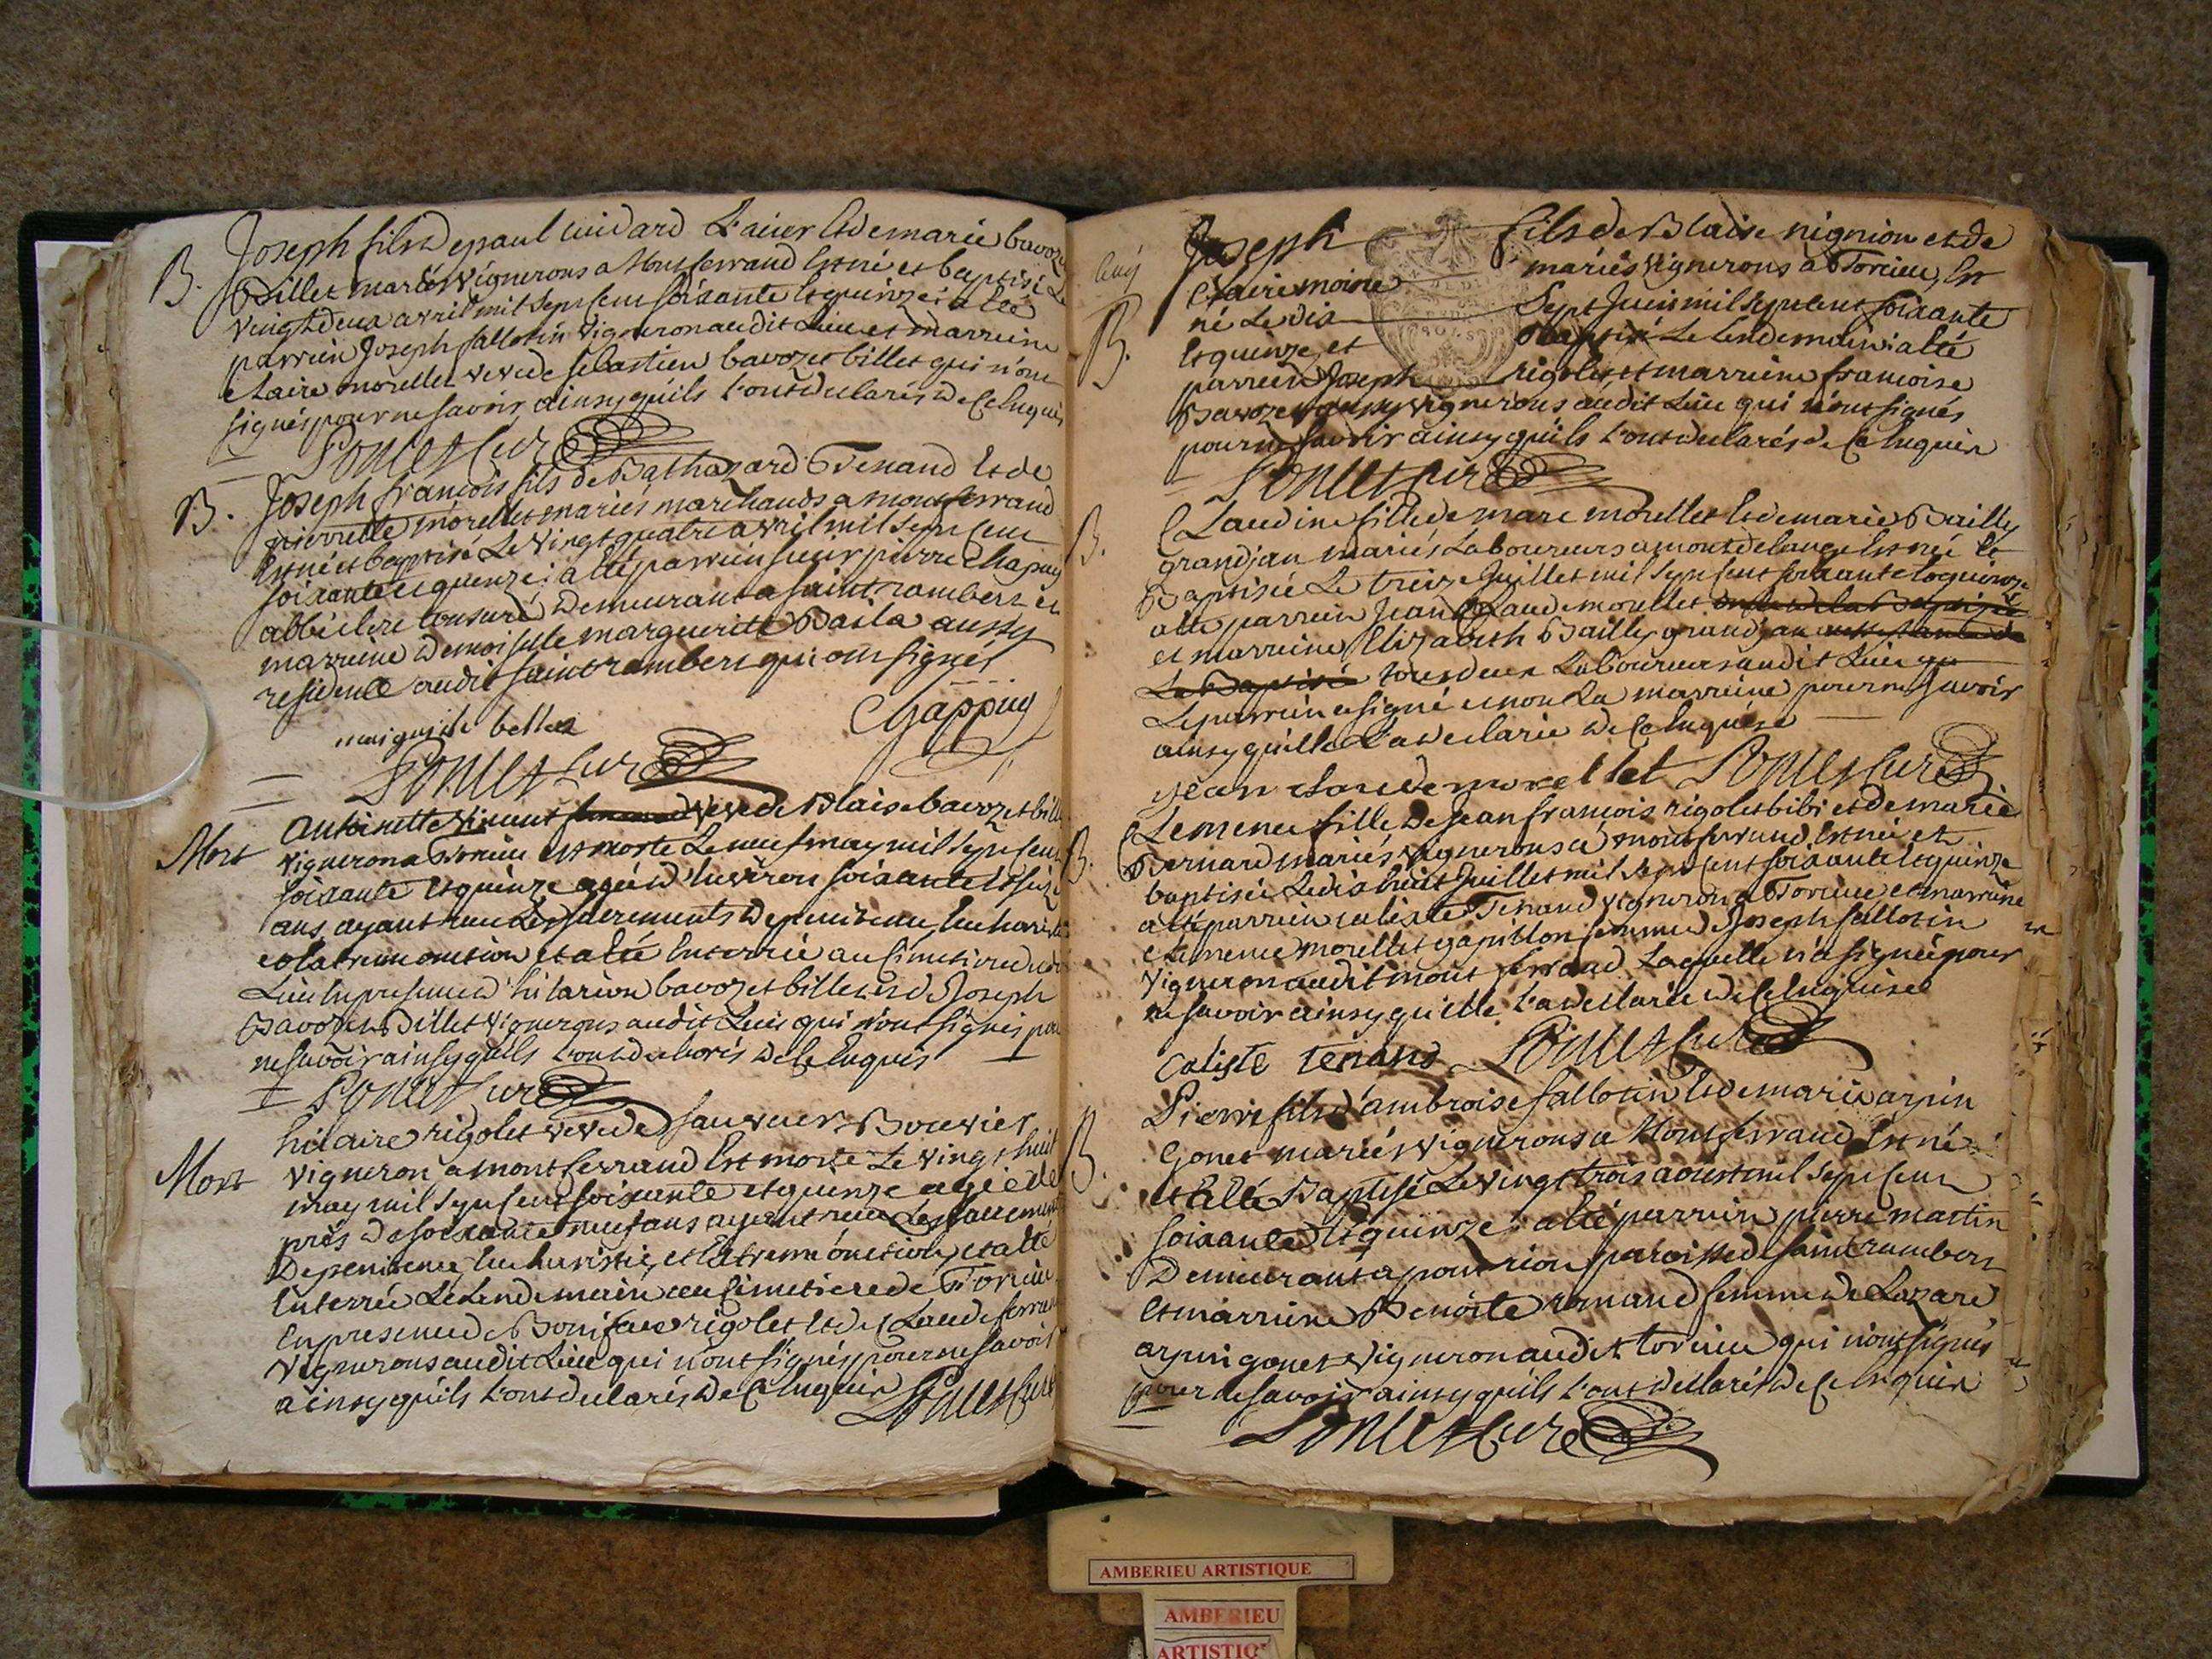 B. Joseph fils de paul cuidard L'ainer et de marie bavozet
Billet mariés vignerons a Montferrand est né et baptisé Le
vingt deux avril mil sept cent soixante et quinze : a été
parrein Joseph fallotin vigneron audit Lieu et marreine
claire morellet veve de sebastien bavozet billet qui n'ont
signés pour ne savoir ainsy quils l'ont declarés de ce Enquis
Ponlet Curé
B. Joseph françois fils de Balthazard Tenand et de
pierrette morellet mariés marchands a montferrand
est né et baptisé Le vingt quatre avril mil sept cent
soixante et quinze : a été parrein sieur pierre Chapuy
abbé clerc tonsuré demeurant a saint rambert et
marreine demoiselle marguerite Baila aussy
residente audit saint rambert qui ont signés
Chappuy
Ponlet Curé
Mort antoinette vincent veve de Blaise bavozet bille
vigneron a Torcieu est morte Le neuf may mil sept cent
soixante et quinze agée d'environ soixante et seize
ans, ayant reçu Les sacrements de penitence, Eucharistie
et extreme onction et a été Enterrée au cimetiere dudit
Lieu En presence d'hilarion bavozet billet et de Joseph
Bavozet Billet vignerons audit Lieu qui n'ont signés pour
ne savoir ainsy quils l'ont declarés de ce Enquis
Ponlet Curé
hilaire rigolet veve de sauveur Bouvier
Mort vigneron a montferrand est morte Le vingt huit
may mil sept cent soixante et quinze agée de
près de soixante neuf ans ayant reçu Les sacrements
De penitence, Eucharistie, et Extreme onction, et a été
Enterrée Le Lendemain au cimetiere de Torcieu
En presence de Boniface rigolet et de Claude ferrand
vignerons audit Lieu qui n'ont signés pour ne savoir
ainsy quils l'ont declarés de ce Enquis Ponlet Curé
Joseph fils de Blaise nignion et de
claire moine mariés vignerons a Torcieu, est
B. né Le dix sept Juin mil sept cent soixante
et quinze, et Baptisé Le Lendemain : a été
parrein Joseph rigolet, et marreine francoise
Bavozet vignerons audit Lieu qui n'ont signés
pour ne savoir ainsy quils l'ont declarés de ce Enquis
Ponlet Curé
B. Claudine fille de marc morellet et de marie Bailly
grandjan mariés Laboureurs a mont de lange est née et
Baptisée Le treize Juillet mil sept cent soixante et quinze
a été parrein Jean Claude morellet
et marreine Elizabeth Bailly grandjan
tous deux Laboureurs audit Lieu
Le parrein a signé et non La marreine pour ne savoir
ainsy quelle L'a declarée de ce Enquise
jean claude morellet Ponlet Curé
B. Clemence fille de Jean françois rigolet bibi et de marie
Bernard mariés vignerons a montferrand est née et
baptisée Le dix huit Juillet mil sept cent soixante et quinze
a été parrein calixte Tenand vigneron a Torcieu et marreine
clemence morellet gapillon femme de Joseph fallotin
vigneron audit mont ferrand Laquelle n'a signée pour
ne savoir ainsy quelle L'a declarée de ce Enquise
Caliste tenand Ponlet Curé
B. Pierre fils d'ambroise fallotin et de marie arpin
Gonet mariés vignerons a Montferrand est né
et a été Baptisé Le vingt trois aoust mil sept cent
soixante et quinze : a été parrein pierre martin
Demeurant a paroisse de saint rambert
et marreine Benoite romand femme de Lazare
arpin gonet vigneron audit torcieu qui n'ont signés
pour ne savoir ainsy quils l'ont declarés de ce Enquis
Ponlet Curé
AMBERIEU ARTISTIQUE
AMBERIEU
ARTISTIQ